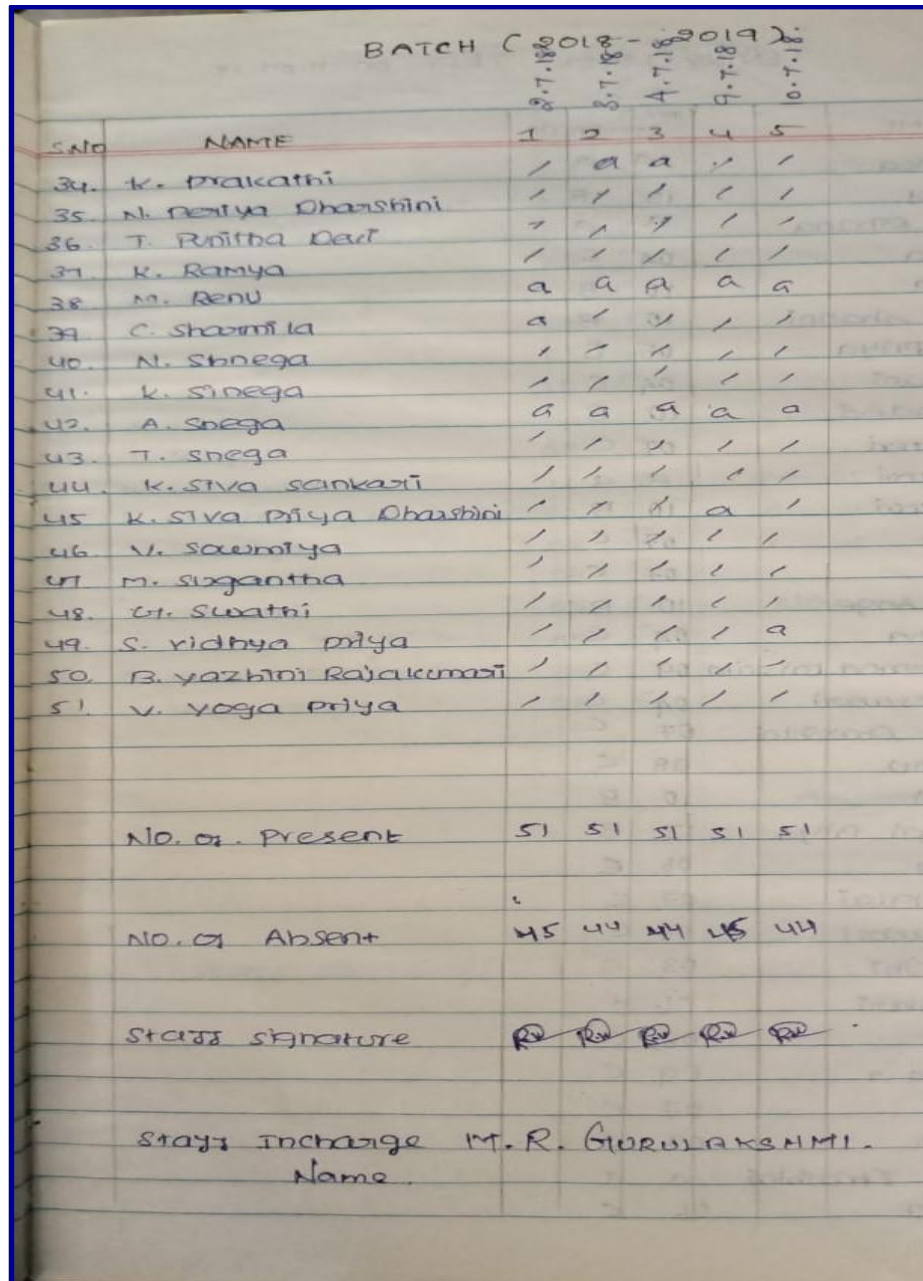 BATCH ( 2018 - 2019 ).
2.7.18 3.7.18 4.7.18 9.7.18 10.7.18.
S.NO NAME 1 2 3 4 5
34. K. Prakathi / a a / /
35. N. Periya Dharshini / / / / /
36. T. Punitha Devi / / / / /
37 K. Ramya / / / / /
38 M. Renu a a a a a
39 C. Sharmila a / / / /
40. N. Shnega / / / / /
41. K. Sinega / / / / /
42. A. Snega a a a a a
43. T. Snega / / / / /
44. K. Siva Sankari / / / / /
45 K. Siva Priya Dharshini / / / a /
46 V. Sowmiya / / / / /
47 M. Sugantha / / / / /
48. G. Swathi / / / / /
49. S. Vidhya Priya / / / / a
50. B. Yazhini Rajakumari / / / / /
51. V. Yoga Priya / / / / /
No. of. Present 51 51 51 51 51
No. of Absent 45 44 44 45 44
Staff Signature
Staff Incharge M.R. GURULAKSHMI.
Name.